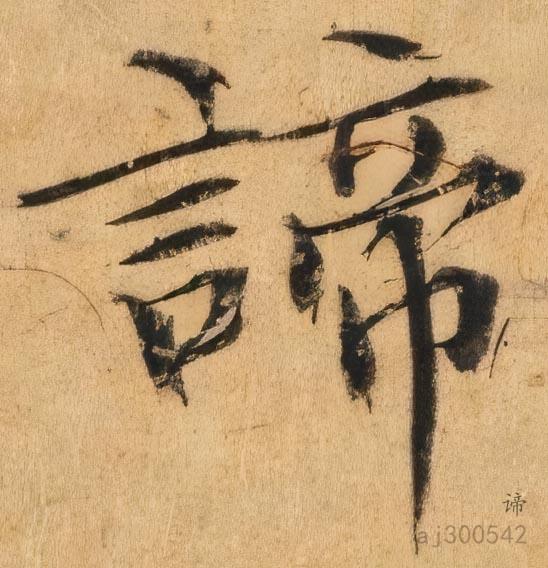 諦
谛
aj300542